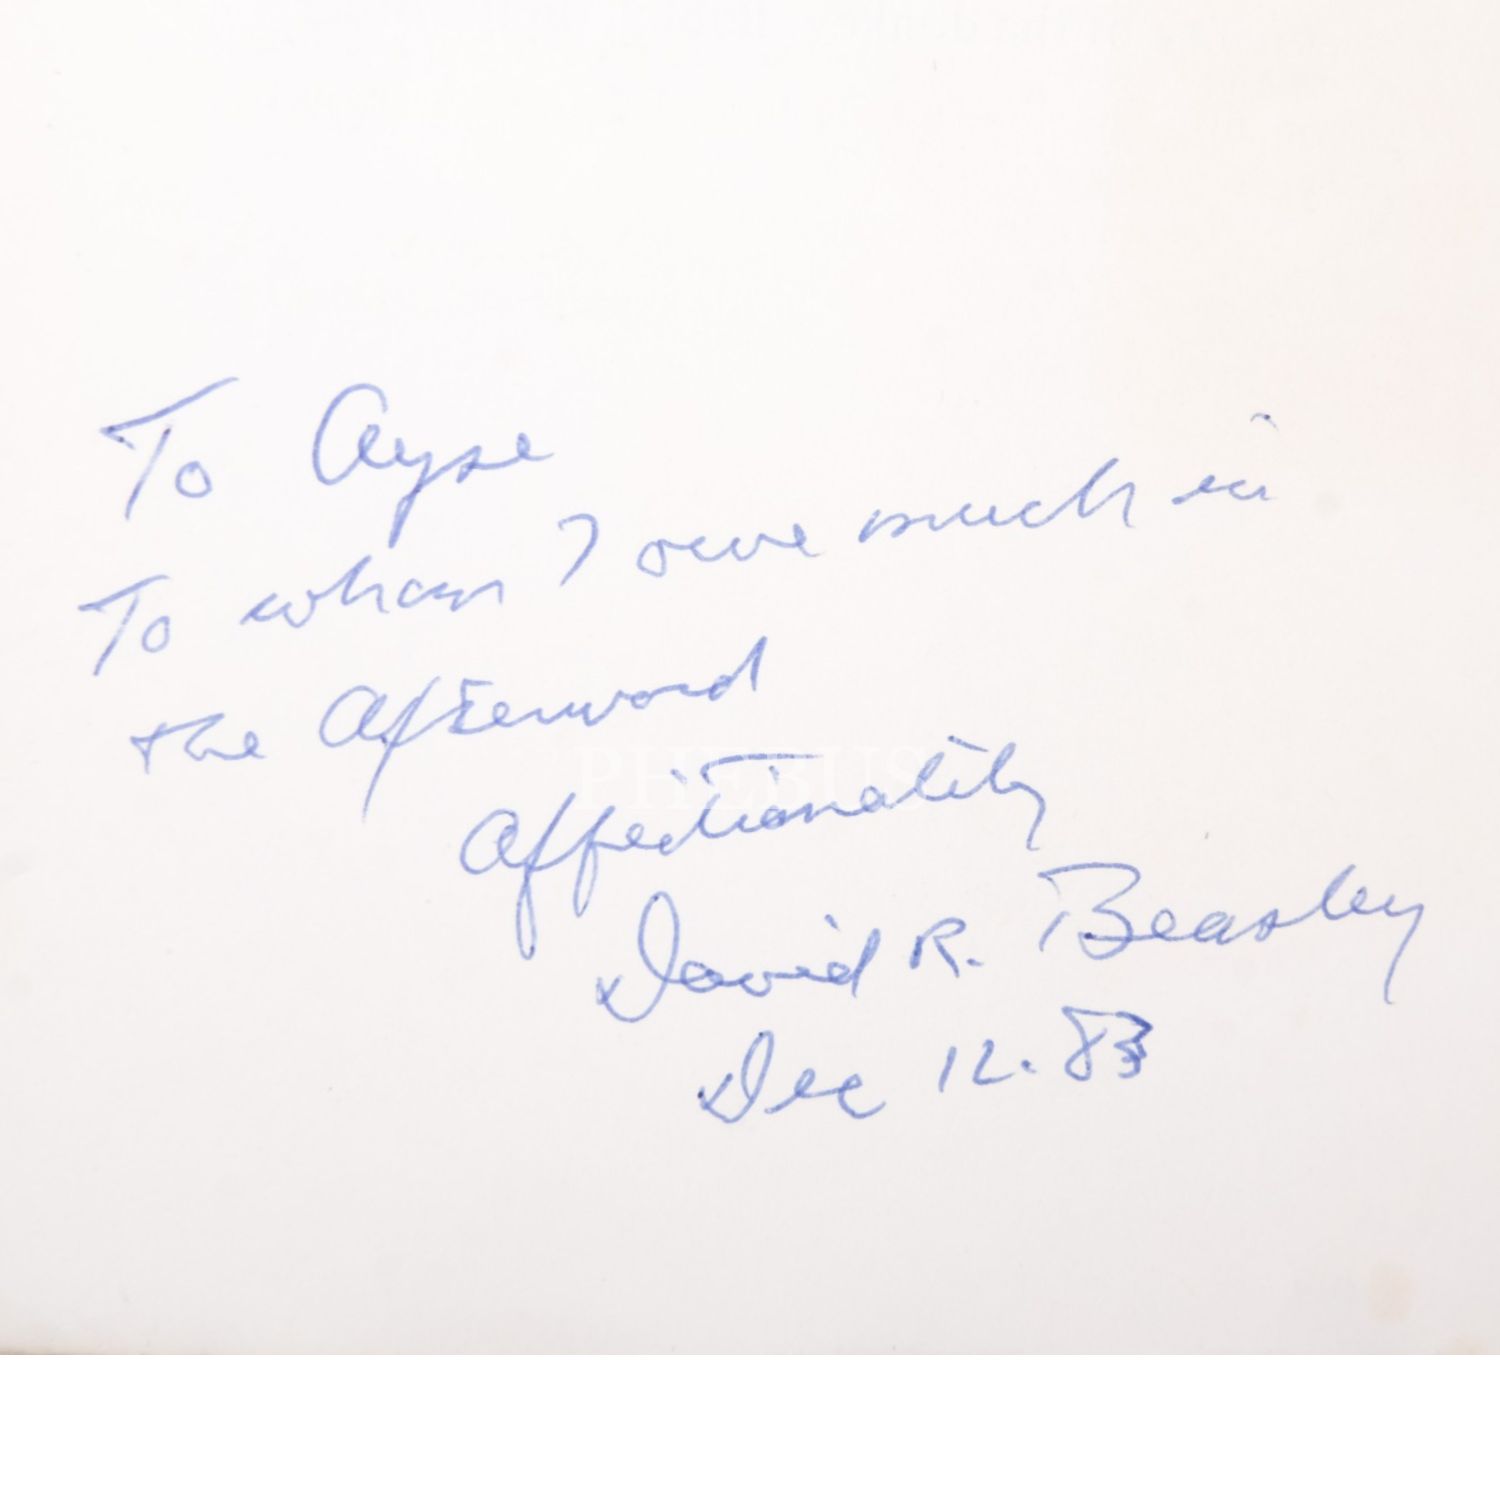 To Ayse
To whom I owe much in
the Afterword
PHEBUS
Affectionality
David R. Beasley
Dec 12. 83